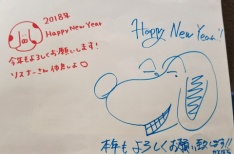 2018年
Happy New Year
今年もよろしくお願いします!
リスナーさん仲良しよ
Happy New Year!
本年もよろしくお願い致します!!